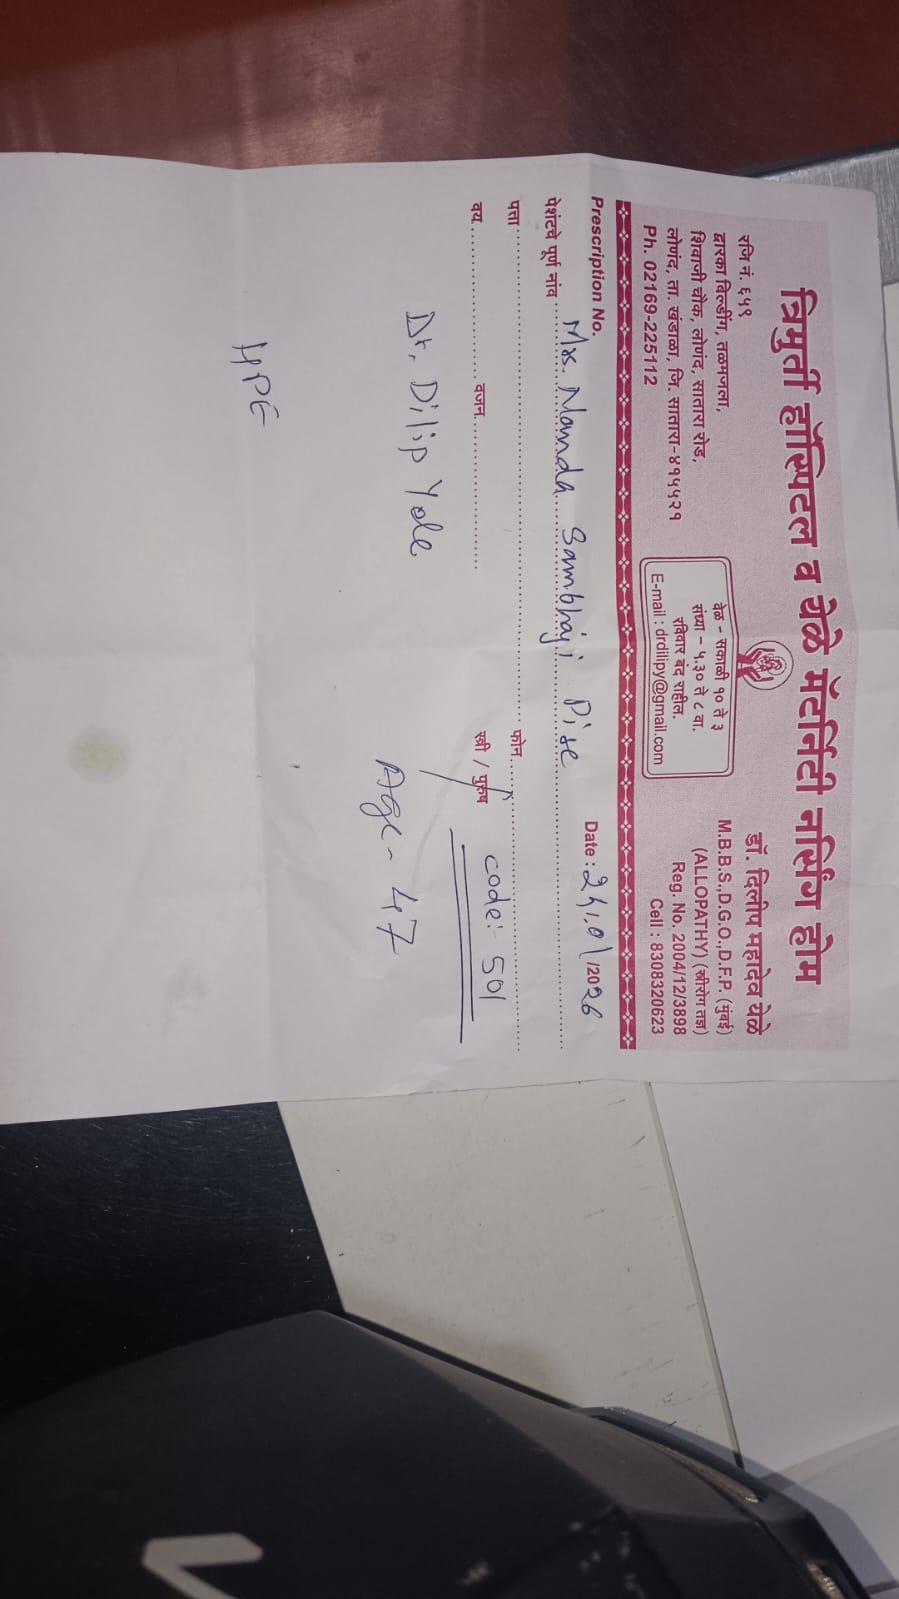 त्रिमुर्ती हॉस्पिटल व येळे मॅटर्निटी नर्सिंग होम
रजि नं. ६५९
द्वारका बिल्डींग, तळमजला,
शिवाजी चौक, लोणंद, सातारा रोड,
लोणंद, ता. खंडाळा, जि. सातारा-४१५५२१
Ph. 02169-225112
वेळ - सकाळी १० ते ३
संध्या - ५.३० ते ८ वा.
रविवार बंद राहील.
E-mail : drdilipy@gmail.com
डॉ. दिलीप महादेव येळे
M.B.B.S.,D.G.O.,D.F.P. (मुंबई)
(ALLOPATHY) (स्त्रीरोग तज्ञ)
Reg. No. 2004/12/3898
Cell : 8308320623
Prescription No. Date : 24/01/2026
पेशंटचे पूर्ण नांव Mrs. Nanda Sambhaji Pise
पत्ता फोन
वय वजन स्त्री / पुरुष code:- 501
Dr. Dilip Yele Age - 47
HPE